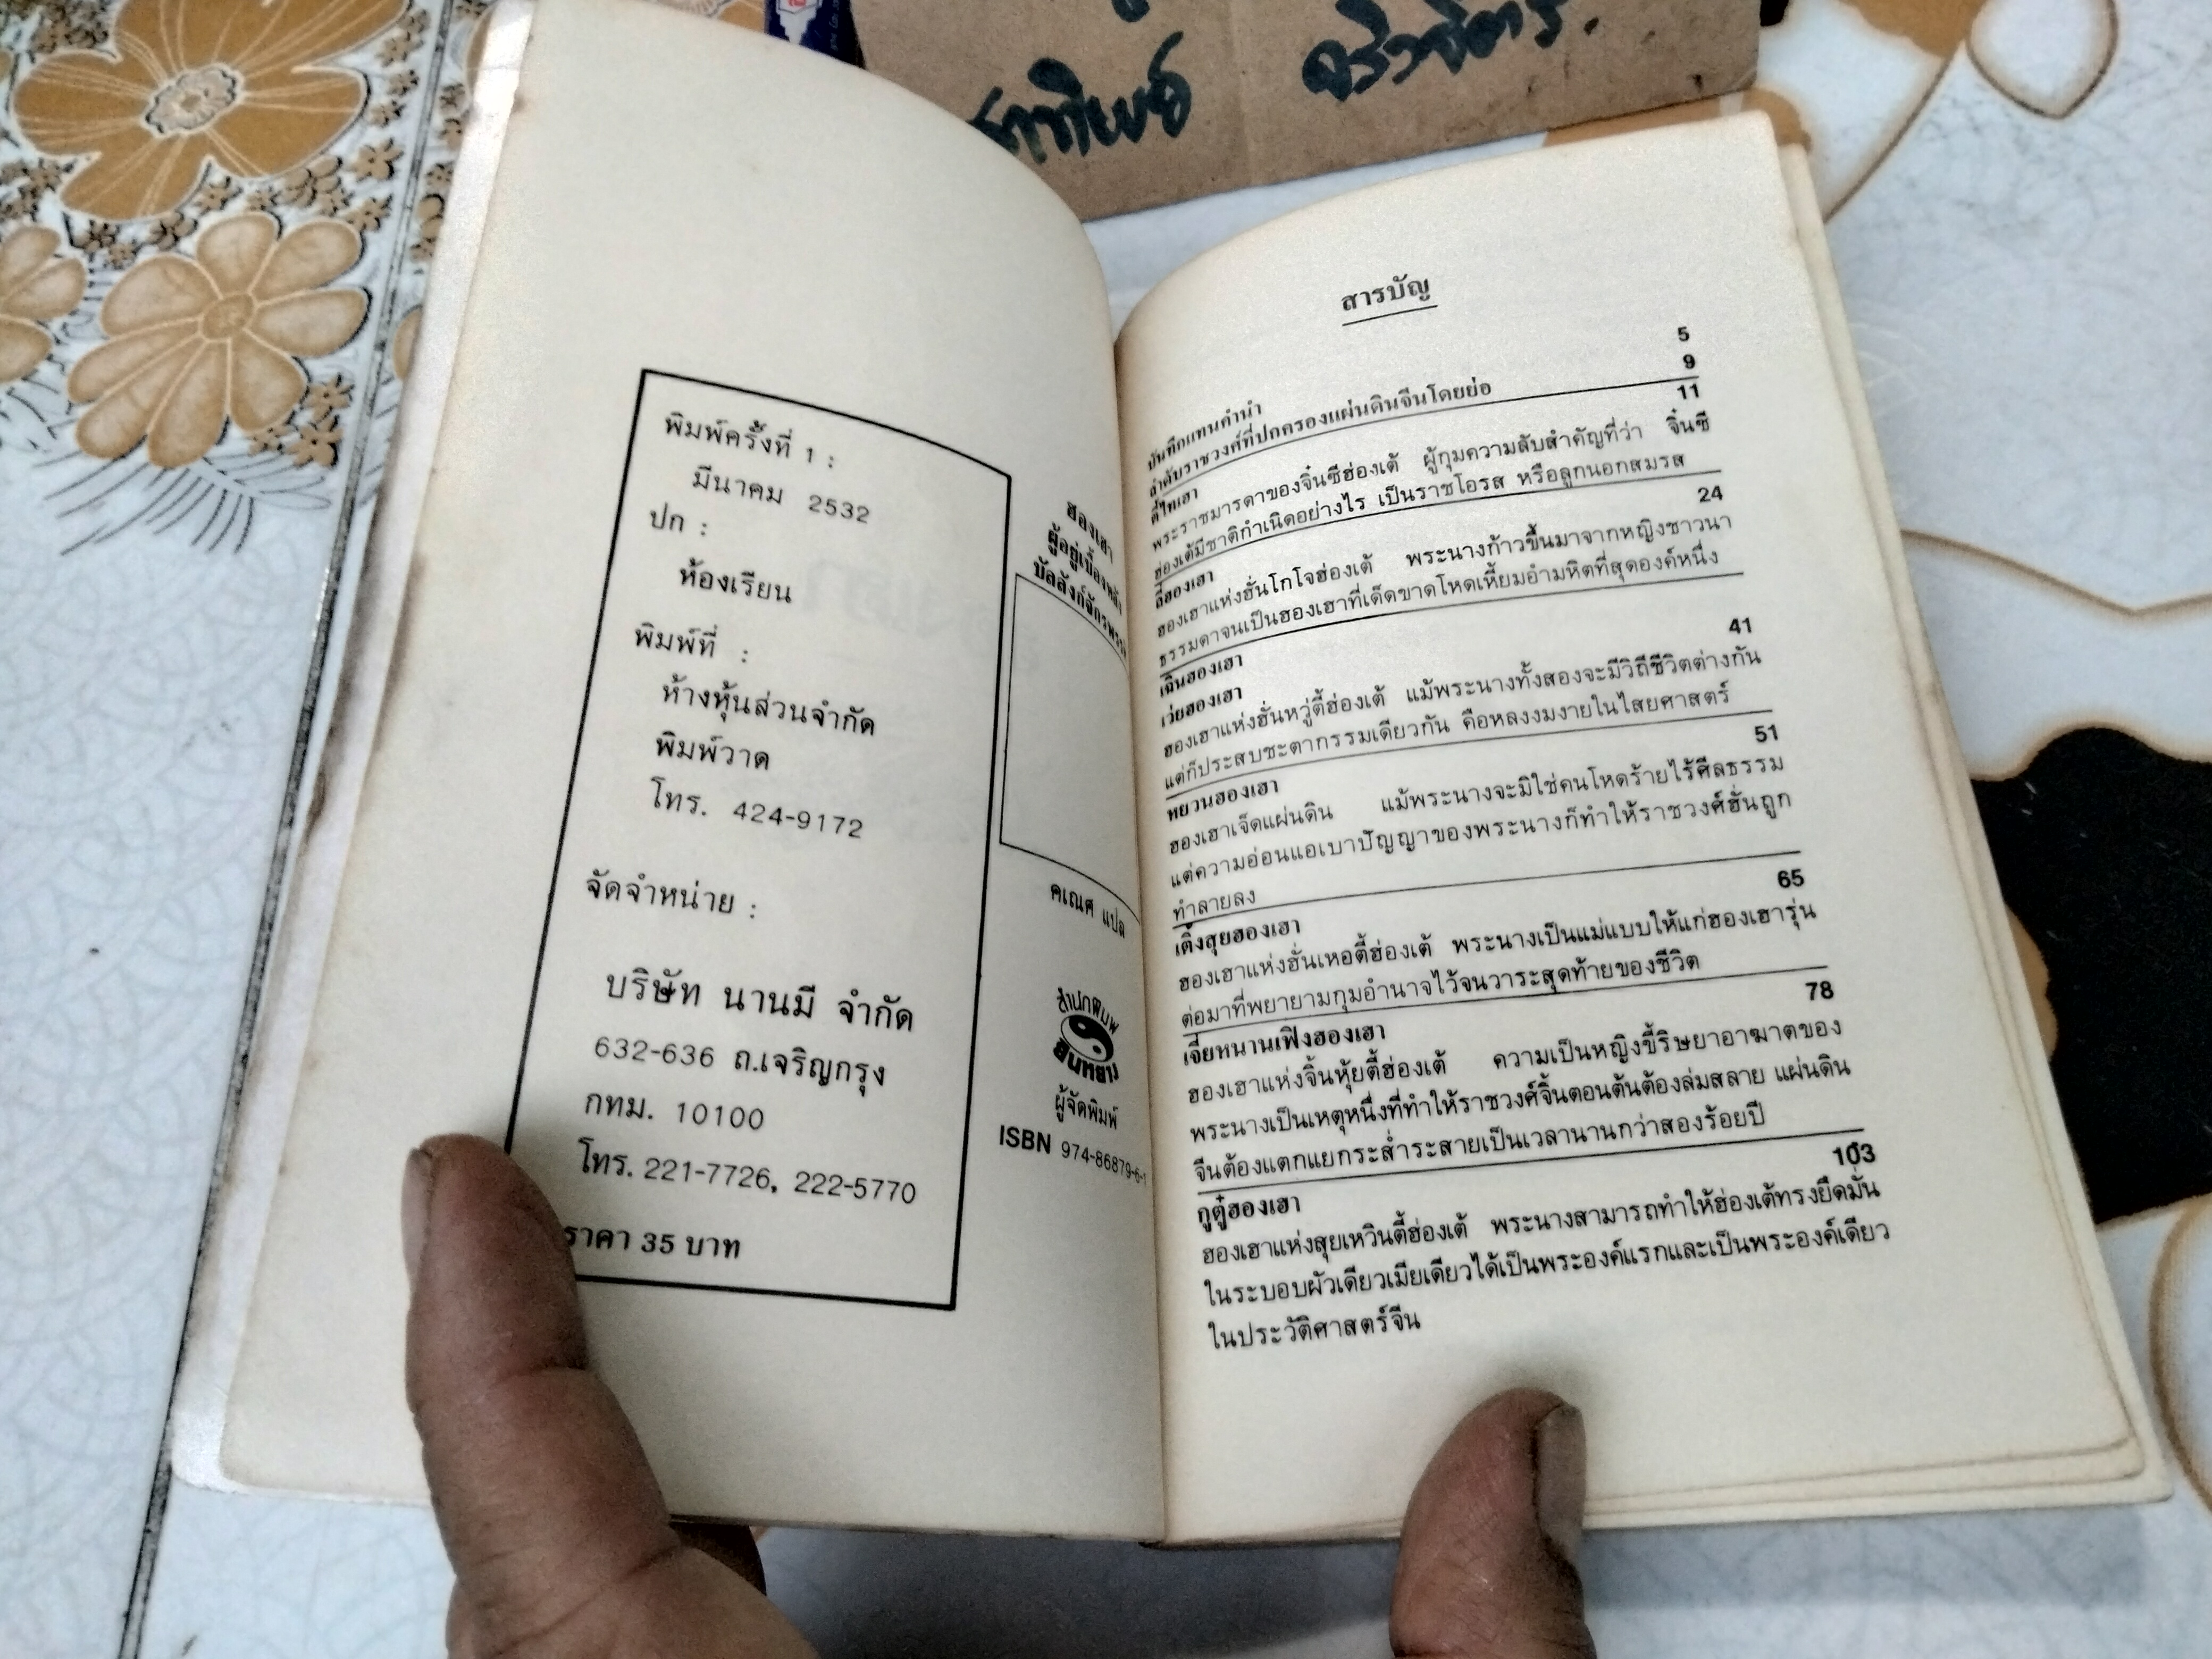 พิมพ์ครั้งที่ 1 :
มีนาคม 2532
ปก :
ห้องเรียน
พิมพ์ที่ :
ห้างหุ้นส่วนจำกัด
พิมพ์วาด
โทร. 424-9172
จัดจำหน่าย :
บริษัท นานมี จำกัด
632-636 ถ.เจริญกรุง
กทม. 10100
โทร. 221-7726, 222-5770
ราคา 35 บาท
ฮองเฮา
ผู้อยู่เบื้องหลัง
คเณศ แปล
สำนักพิมพ์
ยินหยาง
ผู้จัดพิมพ์
ISBN 974-86879-6-1
สารบัญ
บันทึกแทนคำนำ 5
ลำดับราชวงศ์ที่ปกครองแผ่นดินจีนโดยย่อ 9
ตี้ไทเฮา 11
พระราชมารดาของจิ๋นซีฮ่องเต้ ผู้กุมความลับสำคัญที่ว่า จิ๋นซี
ฮ่องเต้มีชาติกำเนิดอย่างไร เป็นราชโอรส หรือลูกนอกสมรส
ลี่ฮองเฮา 24
ฮองเฮาแห่งฮั่นโกโจฮ่องเต้ พระนางก้าวขึ้นมาจากหญิงชาวนา
ธรรมดาจนเป็นฮองเฮาที่เด็ดขาดโหดเหี้ยมอำมหิตที่สุดองค์หนึ่ง
เฉินฮองเฮา
เว่ยฮองเฮา 41
ฮองเฮาแห่งฮั่นหวู่ตี้ฮ่องเต้ แม้พระนางทั้งสองจะมีวิถีชีวิตต่างกัน
แต่ก็ประสบชะตากรรมเดียวกัน คือหลงงมงายในไสยศาสตร์
หยวนฮองเฮา 51
ฮองเฮาเจ็ดแผ่นดิน แม้พระนางจะมิใช่คนโหดร้ายไร้ศีลธรรม
แต่ความอ่อนแอเบาปัญญาของพระนางก็ทำให้ราชวงศ์ฮั่นถูก
ทำลายลง
เติ้งสุยฮองเฮา 65
ฮองเฮาแห่งฮั่นเหอตี้ฮ่องเต้ พระนางเป็นแม่แบบให้แก่ฮองเฮารุ่น
ต่อมาที่พยายามกุมอำนาจไว้จนวาระสุดท้ายของชีวิต
เจี่ยหนานเฟิงฮองเฮา 78
ฮองเฮาแห่งจิ้นหุ้ยตี้ฮ่องเต้ ความเป็นหญิงขี้ริษยาอาฆาตของ
พระนางเป็นเหตุหนึ่งที่ทำให้ราชวงศ์จิ้นตอนต้นต้องล่มสลาย แผ่นดิน
จีนต้องแตกแยกระส่ำระสายเป็นเวลานานกว่าสองร้อยปี
กูตู๋ฮองเฮา 103
ฮองเฮาแห่งสุยเหวินตี้ฮ่องเต้ พระนางสามารถทำให้ฮ่องเต้ทรงยึดมั่น
ในระบอบผัวเดียวเมียเดียวได้เป็นพระองค์แรกและเป็นพระองค์เดียว
ในประวัติศาสตร์จีน